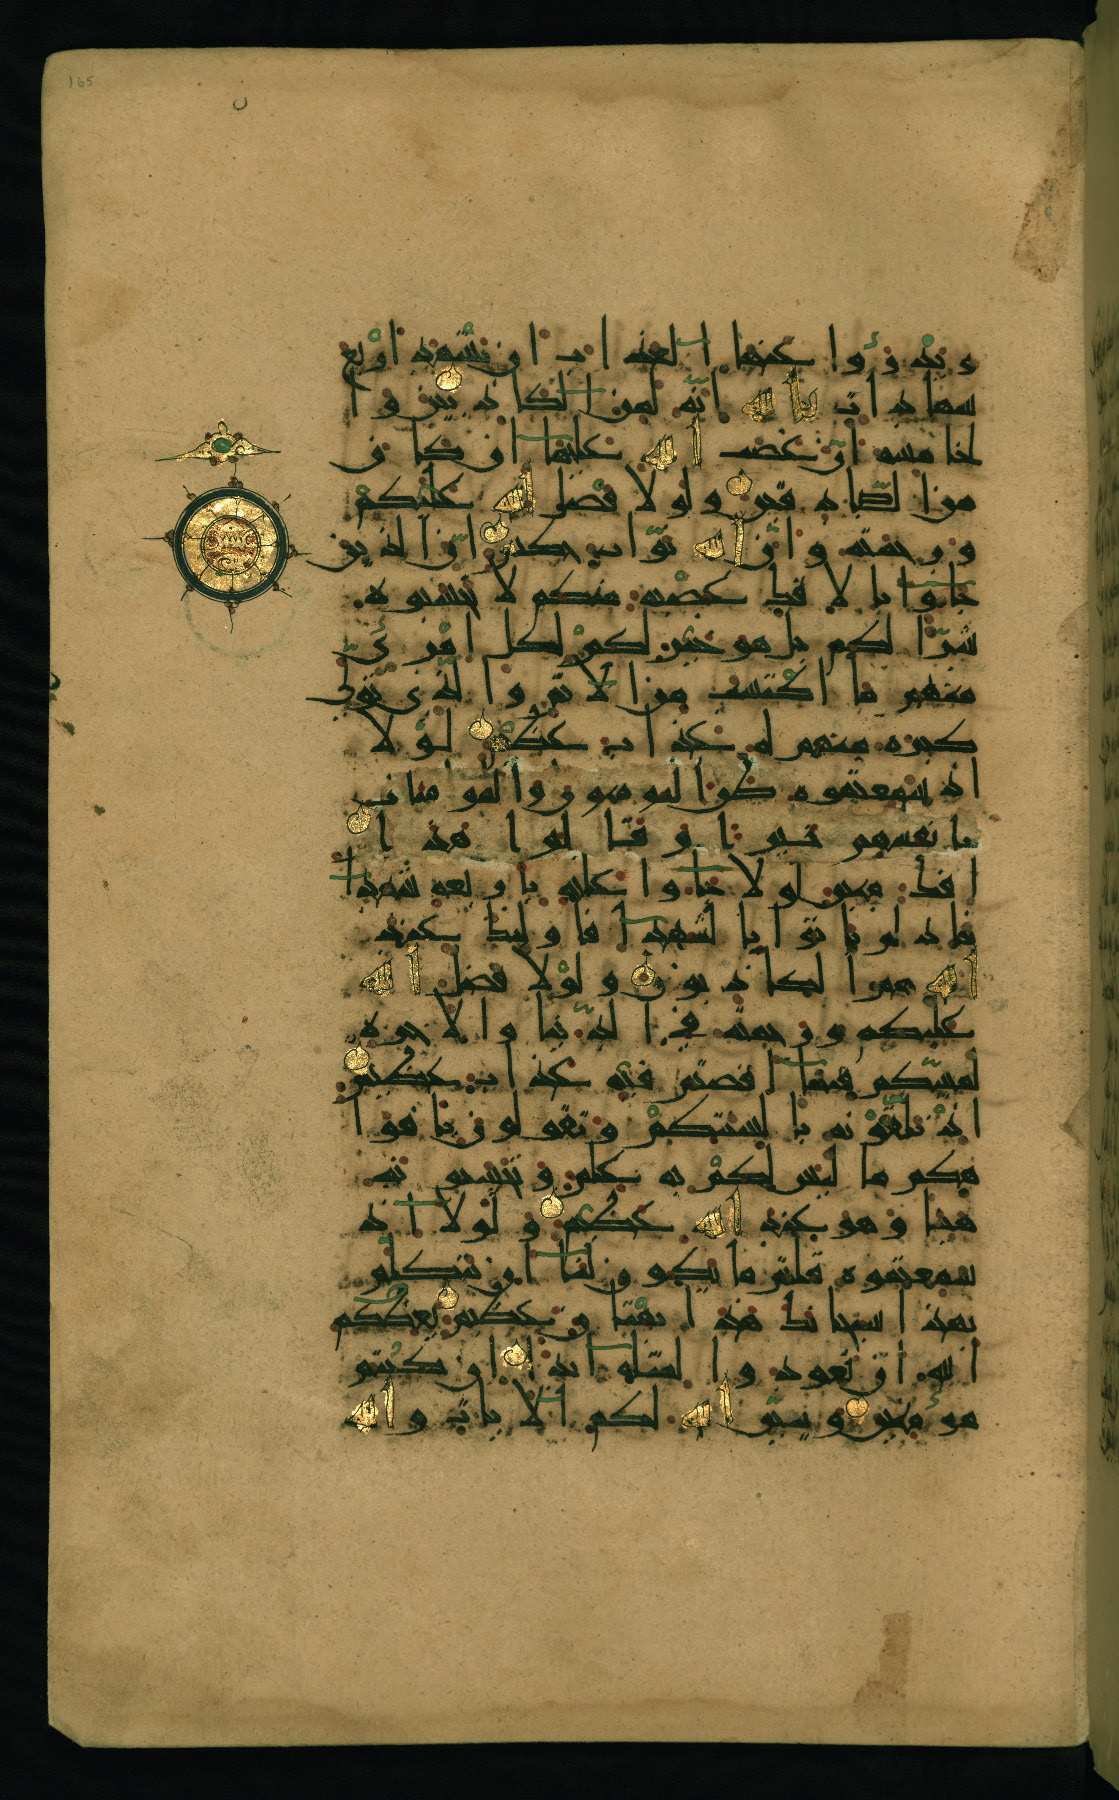 165
ويدرؤا عنها العذاب ان تشهد اربع
شهادات بالله انه لمن الكاذبين وا
لخامسة ان غضب الله عليها ان كان
من الصادقين ولولا فضل الله عليكم
ورحمته وان الله تواب حكيم ان الذين
جاوا بالافك عصبة منكم لا تحسبوه
شرا لكم بل هو خير لكم لكل امرئ
منهم ما اكتسب من الاثم والذي تولى
كبره منهم له عذاب عظيم لولا
اذ سمعتموه ظن المومنون والمومنات
بانفسهم خيرا وقالوا هذا
افك مبين لولا جاوا عليه باربعة شهدا
فاذ لم ياتوا بالشهدا فاوليك عند
الله هم الكاذبون ولولا فضل الله
عليكم ورحمته في الدنيا والاخرة
لمسكم فيما افضتم فيه عذاب عظيم
اذ تلقونه بالسنتكم وتقولون بافوا
هكم ما ليس لكم به علم وتحسبونه
هينا وهو عند الله عظيم ولولا اذ
سمعتموه قلتم ما يكون لنا ان نتكلم
بهذا سبحانك هذا بهتان عظيم يعظكم
الله ان تعودوا لمثله ابدا ان كنتم
مؤمنين ويبين الله لكم الايات والله